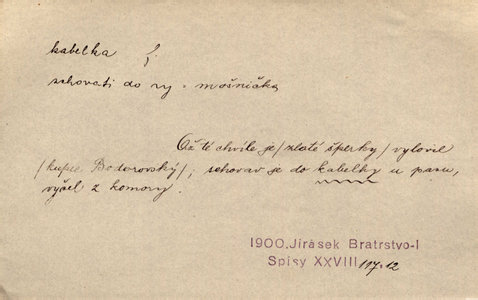 kabelka f.
schovati do ny - mošnička
Až té chvíle je /zlaté šperky/ vylovil
/kupec Bodorovský/; schovav je do kabelky u pasu,
vyšel z komory.
1900, Jirásek Bratrstvo-I
Spisy XXVIII 117.12